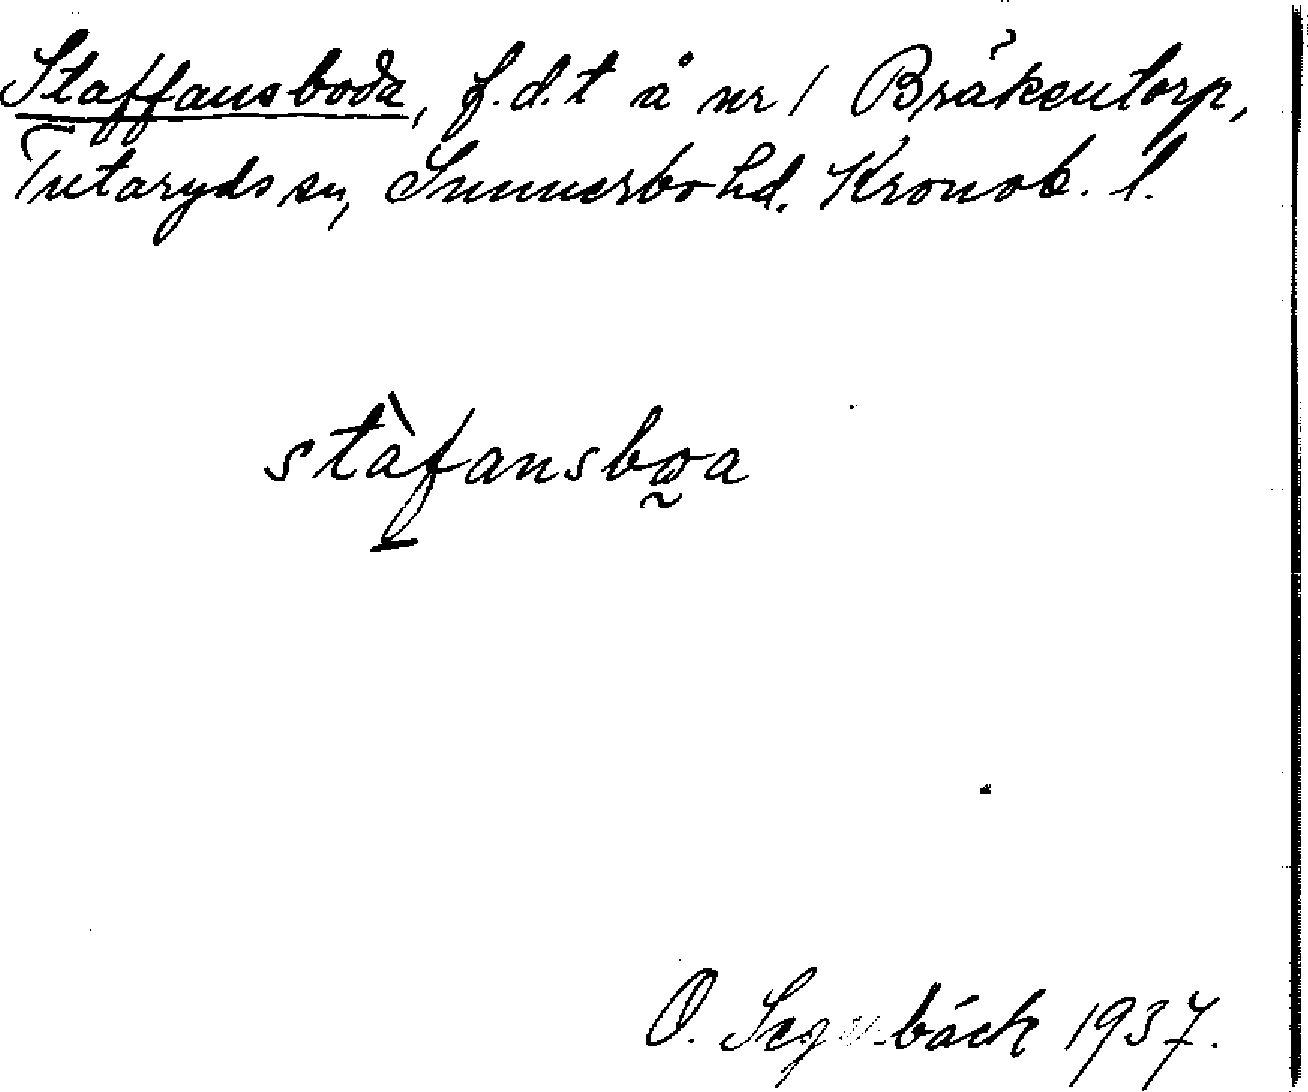 Staffansboda, f.d.t å nr 1 Bräkentorp,
Tutaryds sn, Sunnerbo hd. Kronob. l.
stàfansbo̰a
O. Segerbäck 1937.